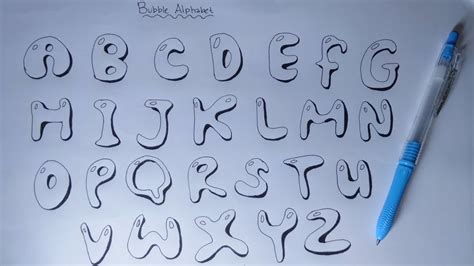 Bubble Alphabet
A B C D E f G
H I J K L M N
O P Q R S T U
V W X Y Z